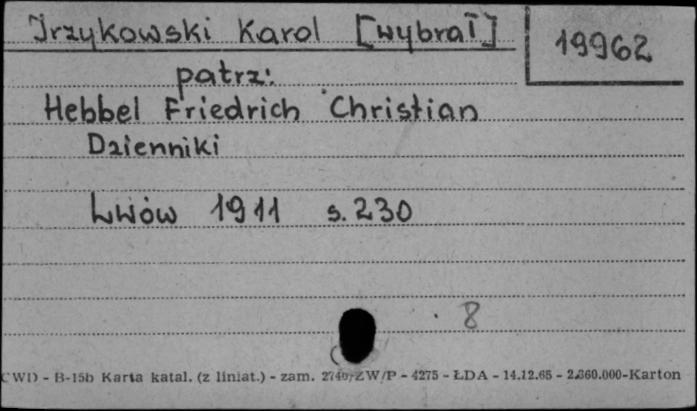 Irzykowski Karol [wybrał]
19962
patrz:
Hebbel Friedrich Christian
Dzienniki
Lwów 1911 s. 230
8
CWD - B-15b Karta katal. (z liniat.) - zam. ZW/P - 4275 - ŁDA - 14.12.65 - 2.860.000-Karton